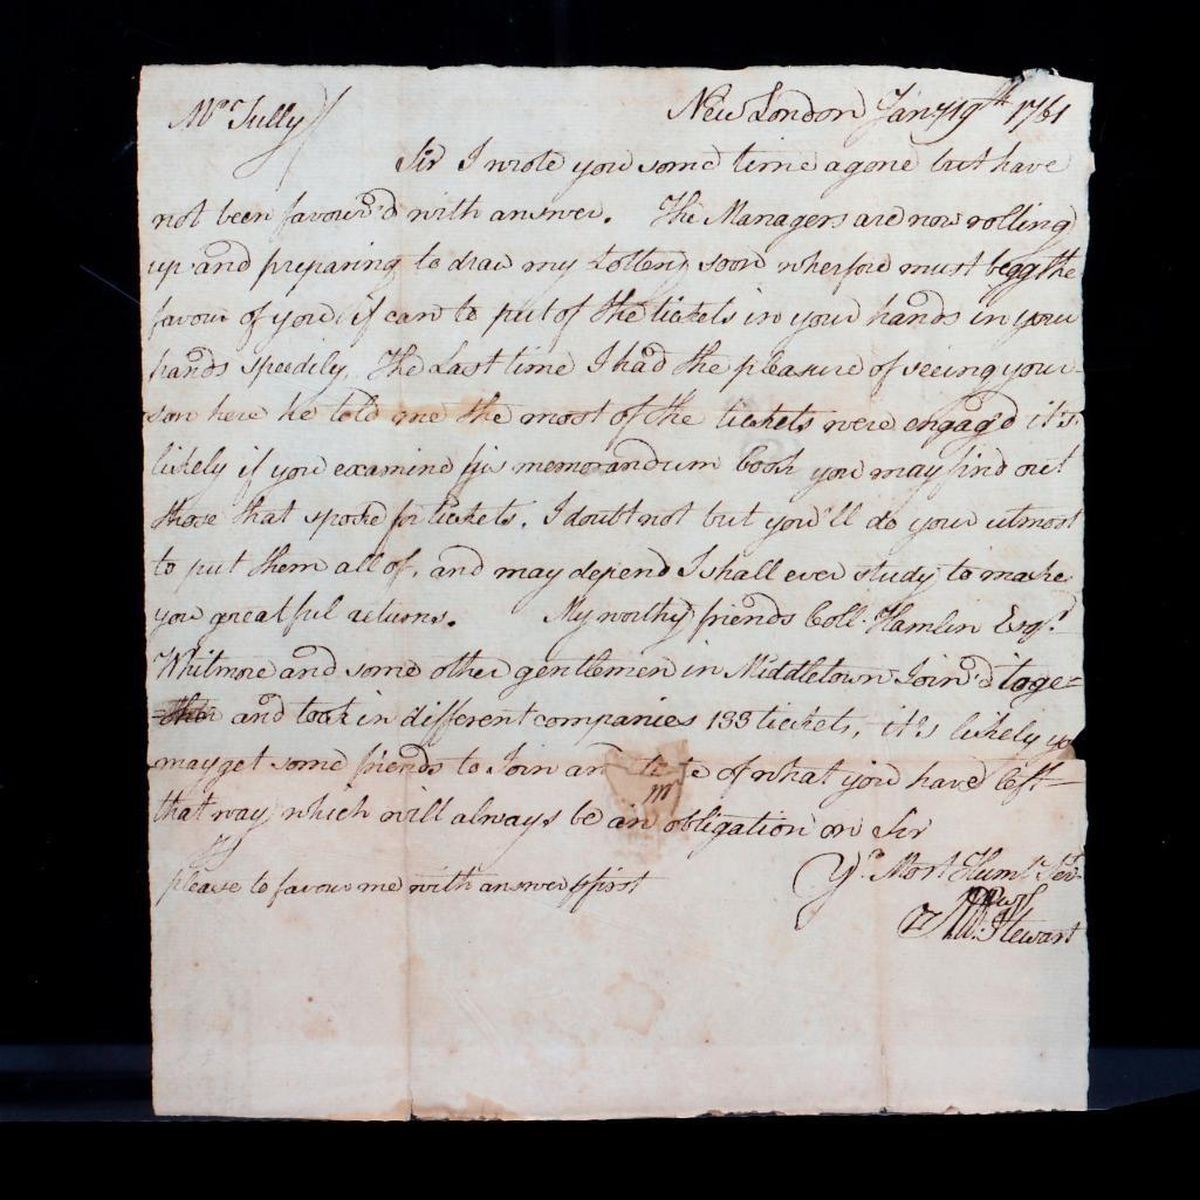 Mr Tully
New London Jany 19th 1761
Sir I wrote you some time agone but have
not been favour'd with answer. The Managers are now rolling
up and preparing to draw my Lottery soon wherfore must begg the
favour of you if can to put of the tickets in your hands in your
hands speedily. The Last time I had the pleasure of seeing your
son here he told me the most of the tickets were engag'd it's
likely if you examine his memorandum book you may find out
those that spoke for tickets. I doubt not but you'll do your utmost
to put them all of, and may depend I shall ever study to make
you greatful returns. My worthy friends Coll. Hamlin Esqr.
Whitmore and some other gentlemen in Middletown Join'd toge=
=ther and took in different companies 133 tickets, it's likely yo
may get some friends to Join an of what you have left
that way which will always be an obligation on Sir
Yr. Most Huml Ser
please to favour me with answer first
Stewart